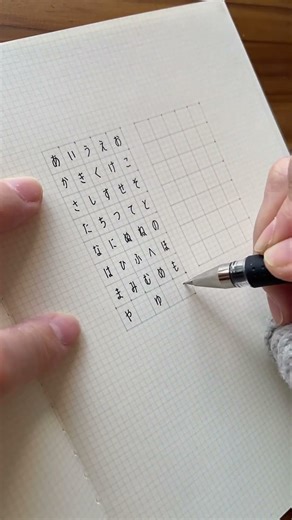 あいうえお
かきくけこ
さしすせそ
たちつてと
なにぬねの
はひふへほ
まみむめも
や ゆ